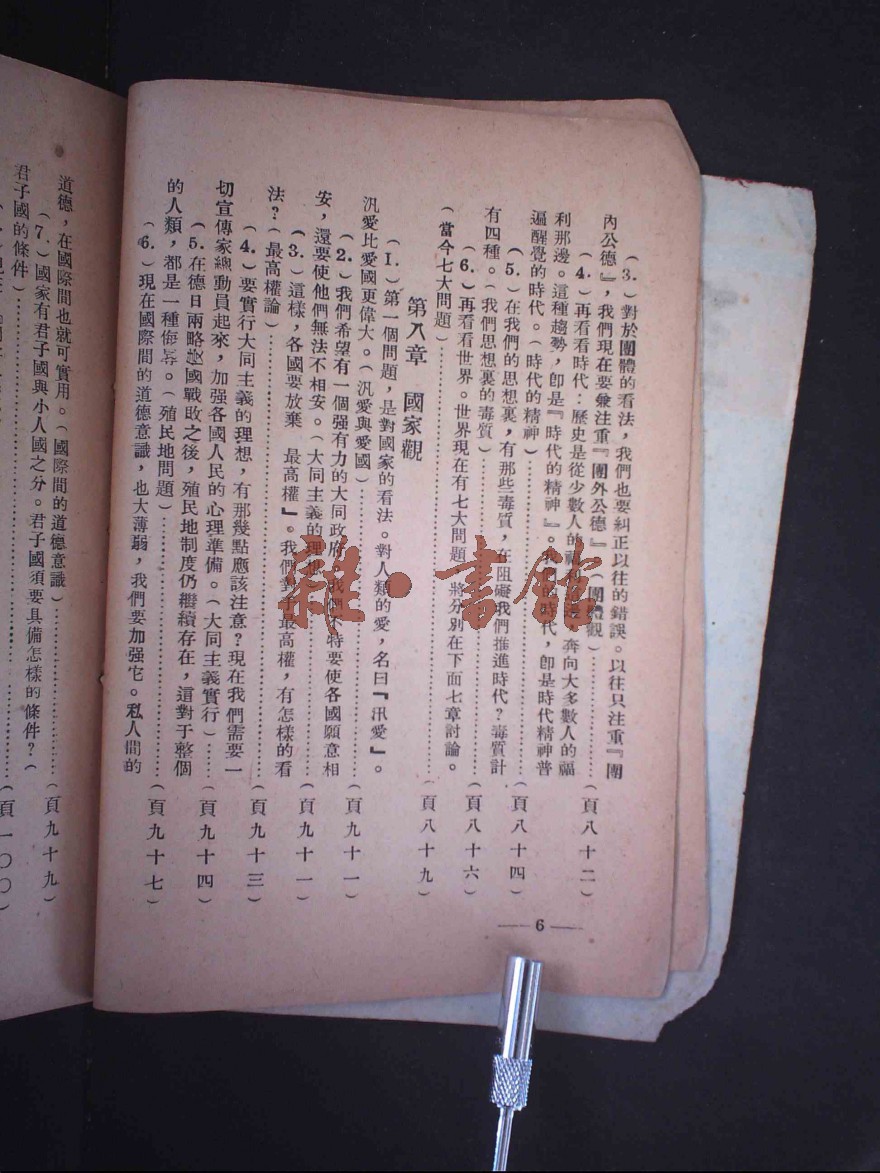 (3.)對於團體的看法，我們也要糾正以往的錯誤。以往只注重『團
內公德』，我們現在要兼注重『團外公德』。(團體觀)……(頁八十二)
(4.)再看看時代：歷史是從少數人的福利那邊，奔向大多數人的福
利那邊。這種趨勢，卽是『時代的精神』。我們的時代，卽是時代精神普
遍醒覺的時代。(時代的精神)……(頁八十四)
(5.)在我們的思想裏，有那些毒質，在阻礙我們推進時代？毒質計
有四種。(我們思想裏的毒質)……(頁八十六)
(6.)再看看世界。世界現在有七大問題，將分別在下面七章討論。
(當今七大問題)……(頁八十九)
第八章 國家觀
(1.)第一個問題，是對國家的看法。對人類的愛，名曰『汎愛』。
汎愛比愛國更偉大。(汎愛與愛國)……(頁九十一)
(2.)我們希望有一個强有力的大同政府，我們不特要使各國願意相
安，還要使他們無法不相安。(大同主義的理想)……(頁九十一)
(3.)這樣，各國要放棄 最高權』。我們對于最高權，有怎樣的看
法？(最高權論)……(頁九十三)
(4.)要實行大同主義的理想，有那幾點應該注意？現在我們需要一
切宣傳家總動員起來，加强各國人民的心理準備。(大同主義實行)……(頁九十四)
(5.在德日兩略國戰敗之後，殖民地制度仍繼續存在，這對于整個
的人類，都是一種侮辱。(殖民地問題)……(頁九十七)
(6.)現在國際間的道德意識，也大薄弱，我們要加强它。私人間的
— 6 —
道德，在國際間也就可實用。(國際間的道德意識)……(頁九十九)
(7.)國家有君子國與小人國之分。君子國須要具備怎樣的條件？(
君子國的條件)……(頁一〇〇)
雜·書館